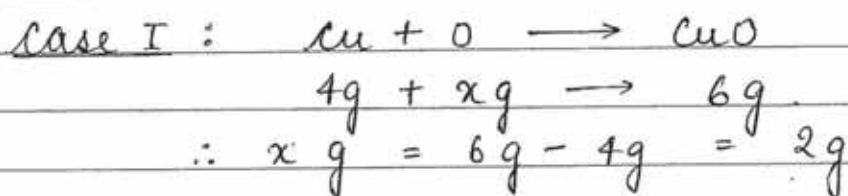 Case I : Cu + O ⟶ CuO
4g + xg ⟶ 6g.
∴ x g = 6g - 4g = 2g